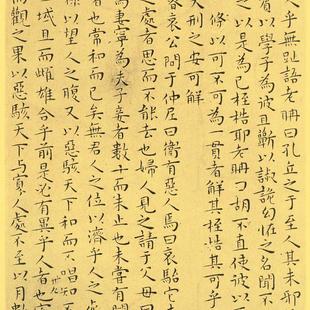 人乎無趾語老聃曰孔丘之于至人其未耶
者以學子為彼且蘄以諔詭幻怪之名聞不
之以是為己桎梏耶老聃曰胡不直使彼以
條以可不可為一貫者解其桎梏其可乎
天刑之安可解
魯哀公問于仲尼曰衛有惡人焉曰哀駘它
之處者思而不能去也婦人見之請于父母曰
為妻寧為夫子妾者數十而未止也未嘗有聞
者也常和而已矣無君人之位以濟乎人之
祿以望人之腹又以惡駭天下和而不唱知
域且而雌雄合乎前是必有異乎人者也寡
而觀之果以惡駭天下與寡人處不至以月數